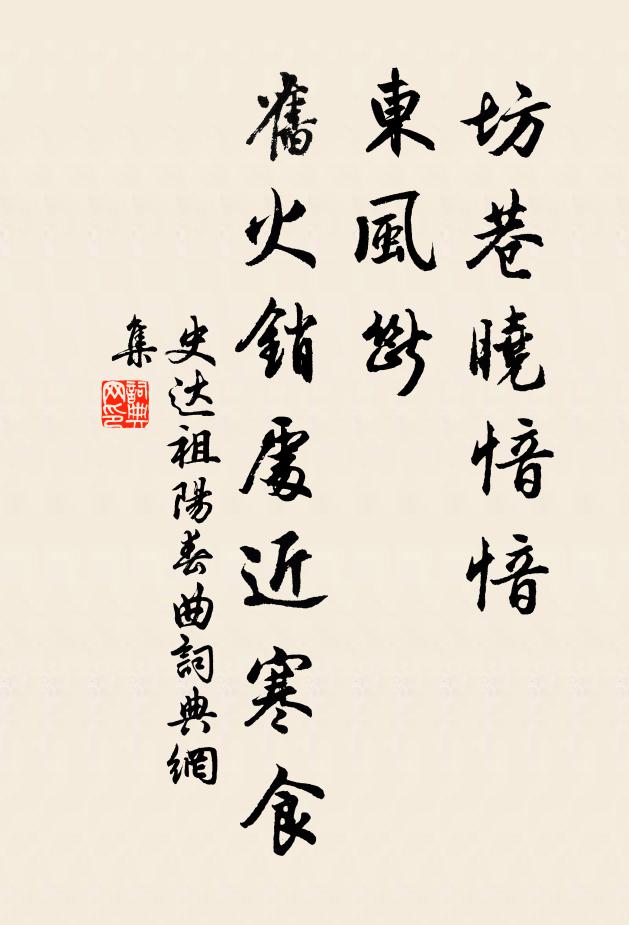 坊巷曉愔愔
東風断
舊火銷處近寒食
史达祖陽春曲詞典網
集
詞典
网印